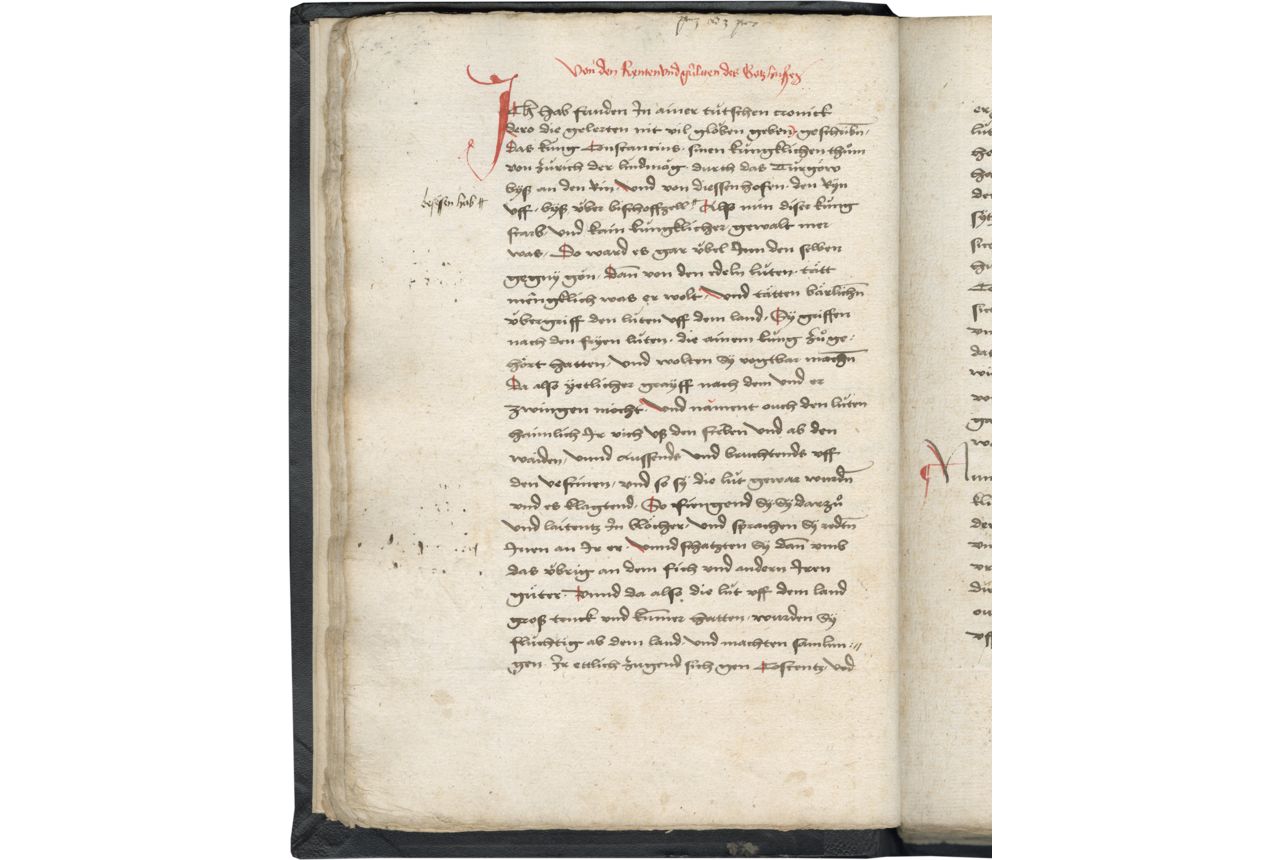 Von den Rentenvnd gülten des Gotzhußez
ICh hab funden In ainer tútschen cronick
dero die gelerten nit vil gloͮben geben geschribñ,
Das kúng Constancius. sinen kúngklichen thuͦm
von zúrich der lindmag. durch das Turgoͤw
byß an den Rin. vnd von diessenhofen. den Ryn
vff. byß v́ber bischoffzell Alß nun diser kúng
besessen hab
starb. vnd kain kúngklicher gewalt mer
was. Do ward es gar v́bel Inn den selben
gegny gon. Dan̄ von den edeln lúten. tátt
mengklich was er wolt. vnd tátten bárlichñ
v́bergriff den lúten vff dem land. Sy griffen
nach den fryen lúten. die ainem kúng zuͦ ge:
hoͤrt hatten. vnd wolten Sy vogtbar machñ
Da also yetlicher grayff nach dem vnd er
zwingen mocht. vnd náment ouch den lúten
haimlich Ir vich vß den steben vnd ab den
waiden. vnnd aussends vnd brachtends vff
den vestinen. vnd so sy die lút gewar wurdñ
vnd es klagtend. So fiengend Sy Sy darzuͦ
vnd laitentz In bloͤcher. vnd sprachen Sy redtñ
Inen an Ir er. vnnd schatzten Sy dan̄ vmb
das v́brig an dem fich vnd andern Iren
guͤter. Vnnd da also die lút vff dem land
groß truck vnd kum̄er hatten. wurden Sy
flúchtig ab dem land. vnd machten samlun:
gen. Ir ettlich zugend sich gen Costentz. vnd